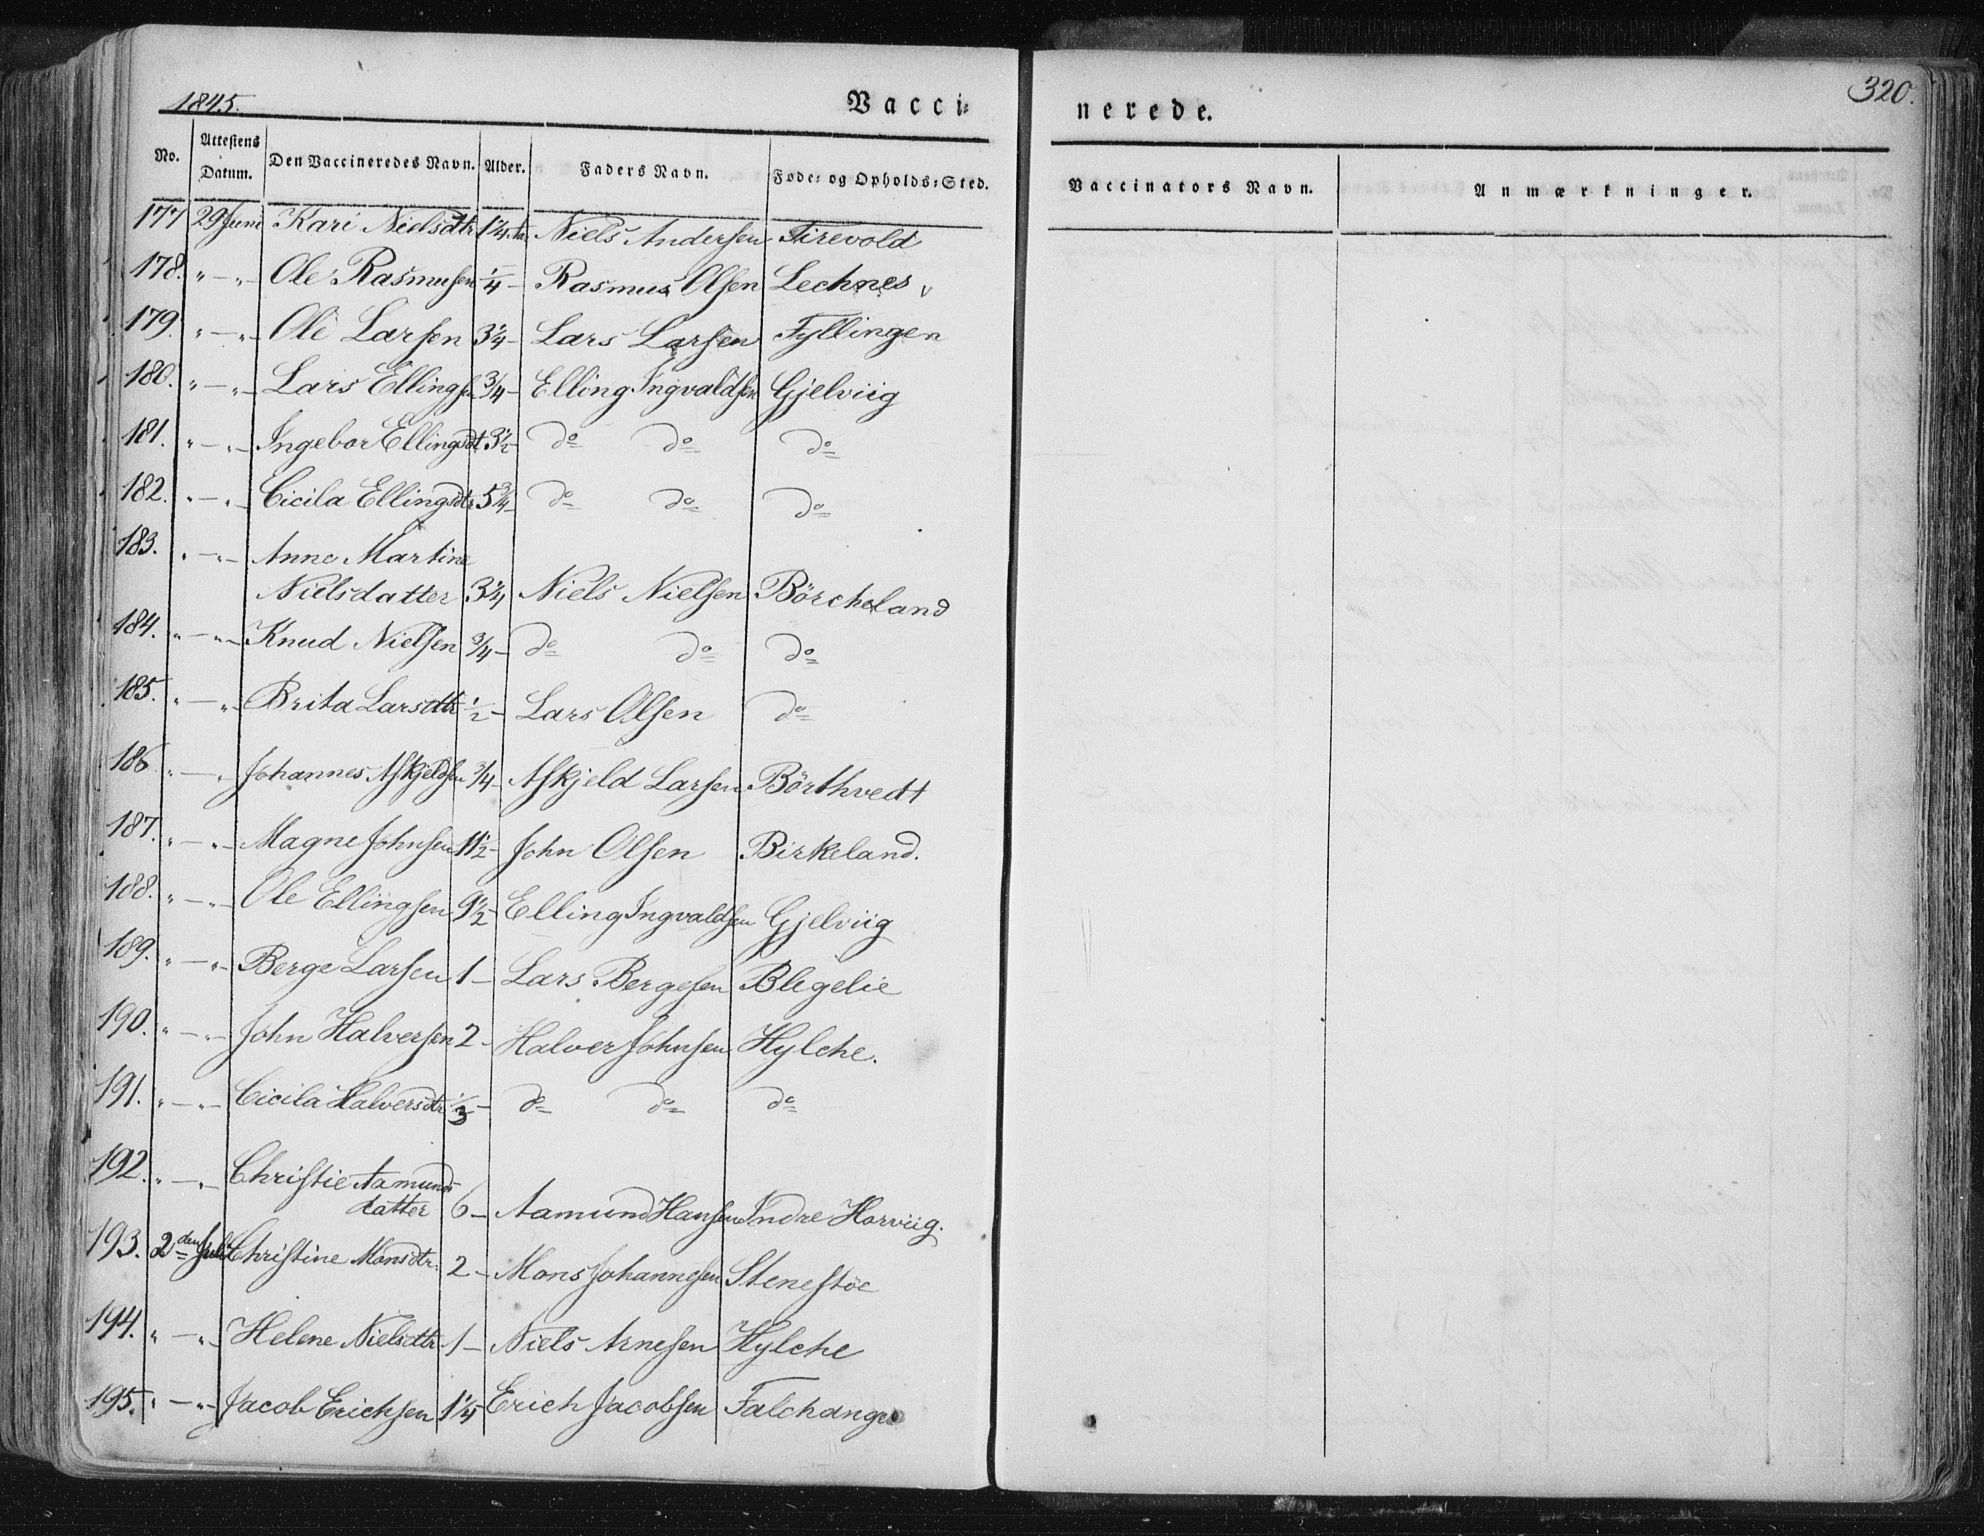 1845.
Vacci=
nerede.
320.
No. Attestens Datum. Den Vaccineredes Navn. Alder. Faders Navn. Føde= og Opholds=Sted. Vaccinators Navn. Anmærkninger.
177 29 Juni Kari Nielsdtr 1 1/4 Niels Andersen Tirevold
178. " — " Ole Rasmusen 1/4 — Rasmus Olsen Lechnes
179. " — " Ole Larsen 3 1/4 — Lars Larsen Fyllingen
180. " — " Lars Ellingsen 3/4 — Elling Ingvaldsen Gjelviig
181. " — " Ingebor Ellingsdt 3 1/2 — do do do
182. " — " Cicila Ellingsdtr 5 3/4 — do do do
183. " — " Anne Martine
Nielsdatter 3 1/4 Niels Nielsen Börcheland
184. " — " Knud Nielsen 3/4 — do do do
185. " — " Brita Larsdtr 1/2 — Lars Olsen do
186 " — " Johannes Askjeldsen 3/4 — Askjeld Larsen Börthvedt
187. " — " Magne Johnsen 11 1/2 — John Olsen Birkeland.
188. " — " Ole Ellingsen 9 1/2 Elling Ingvaldsen Gjelviig
189. " — " Berge Larsen 1 — Lars Bergesen Blegelie
190. " — " John Halversen 2 — Halver Johnsen Hylche.
191. " — " Cicila Halversdtr 1/3 — do do do
192. " — " Christie Aamunds
datter 6 — Aamund Hansen Indre Horviig.
193. 2den Juli Christine Monsdtr. 2 — Mons Johannesen Stenestöe
194. " — " Helene Nielsdtr 1 — Niels Arnesen Hylche
195. " — " Jacob Erichsen 1 1/4 Erich Jacobsen Falchanger